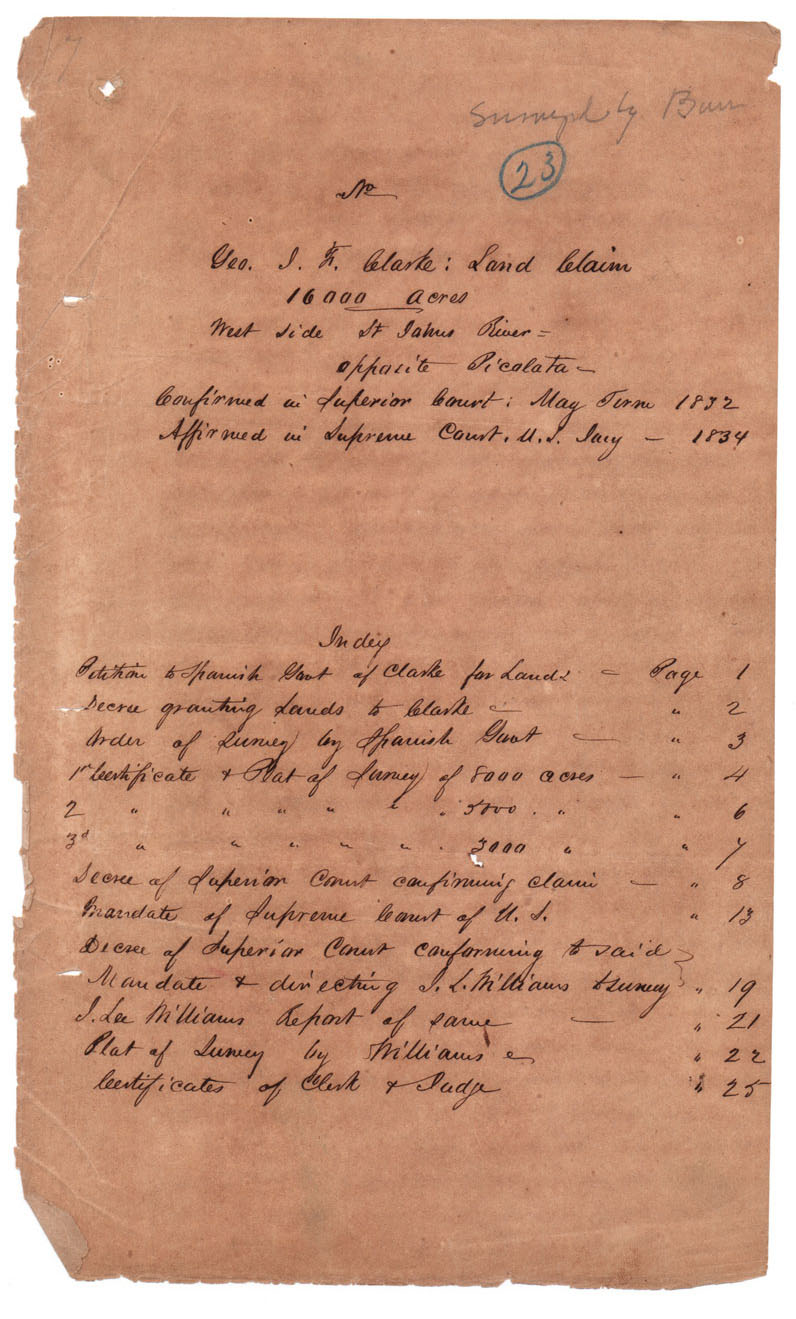 7
Surveyed by Burr
23
No
Geo. I. F. Clarke: Land Claim
16000 Acres
West side St Johns River =
opposite Picolata -
Confirmed in Superior Court: May Term 1832
Affirmed in Supreme Court. U.S. Jany - 1834
Index
Petition to Spanish Govt of Clarke for Lands - Page 1
Decree granting Lands to Clarke - " 2
Order of Survey by Spanish Govt - " 3
1st Certificate & Plat of Survey of 8000 acres - " 4
2 " " " " " " 5000 . " " 6
3d " " " " " . 3000 " " 7
Decree of Superior Court confirming claim - " 8
Mandate of Supreme Court of U.S. " 13
Decree of Superior Court conforming to said
Mandate & directing J. L. Williams to survey " 19
J. Lee Williams Report of same - " 21
Plat of Survey by Williams " 22
Certificates of Clerk & Judge " 25